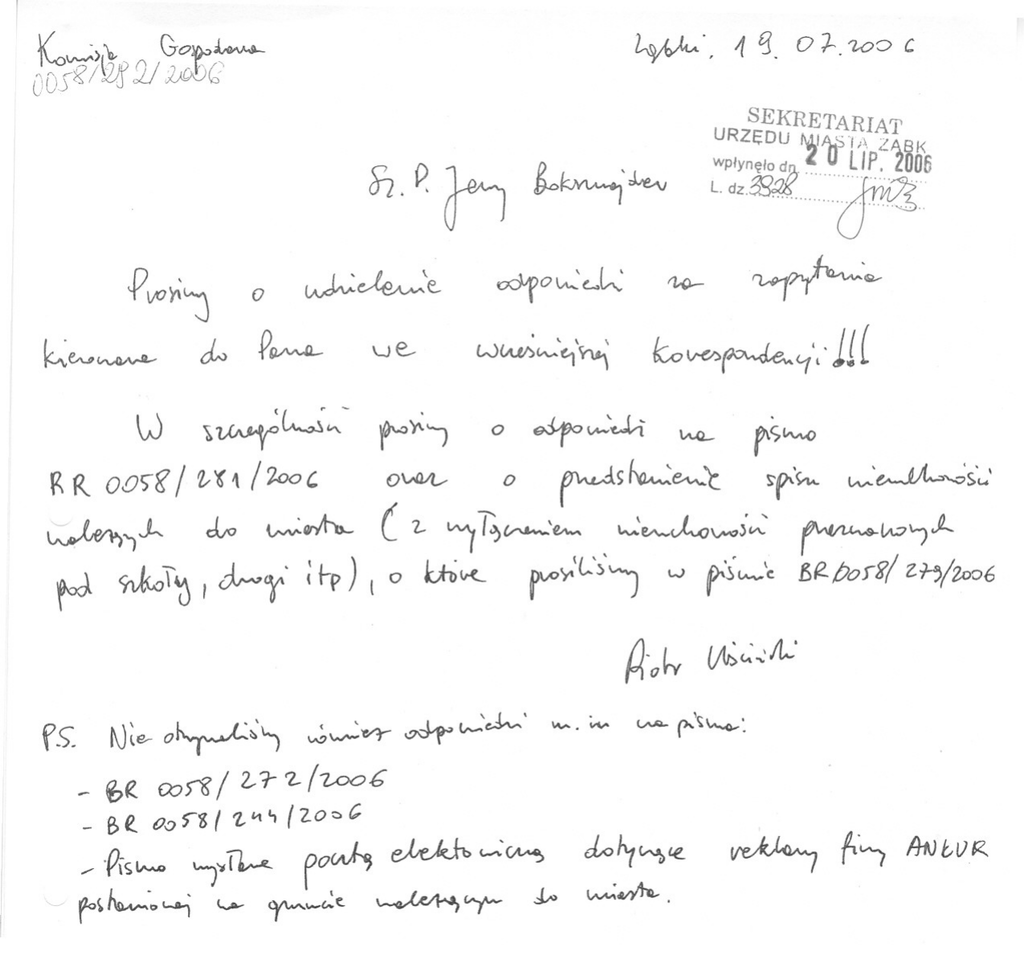 Komisja Gospodarna
Ząbki, 19.07.2006
0058/292/2006
SEKRETARIAT
URZĘDU MIASTA ZĄBK
wpłynęło dn. 20 LIP. 2006
L. dz. 3928
Sz. P. Jerzy Boksznajder
Prosimy o udzielenie odpowiedzi na zapytania
kierowane do Pana we wcześniejszej korespondencji!!!
W szczególności prosimy o odpowiedź na pismo
RR 0058/281/2006 oraz o przedstawienie spisu nieruchomości
należących do miasta (z wyłączeniem nieruchomości przeznaczonych
pod szkoły, drogi itp), o które prosiliśmy w piśmie BR 0058/279/2006
Piotr Uściński
P.S. Nie otrzymaliśmy również odpowiedzi m.in na pisma:
- BR 0058/272/2006
- BR 0058/244/2006
- Pismo wysłane pocztą elektroniczną dotyczące reklamy firmy ANKUR
postawionej na gruncie należącym do miasta.